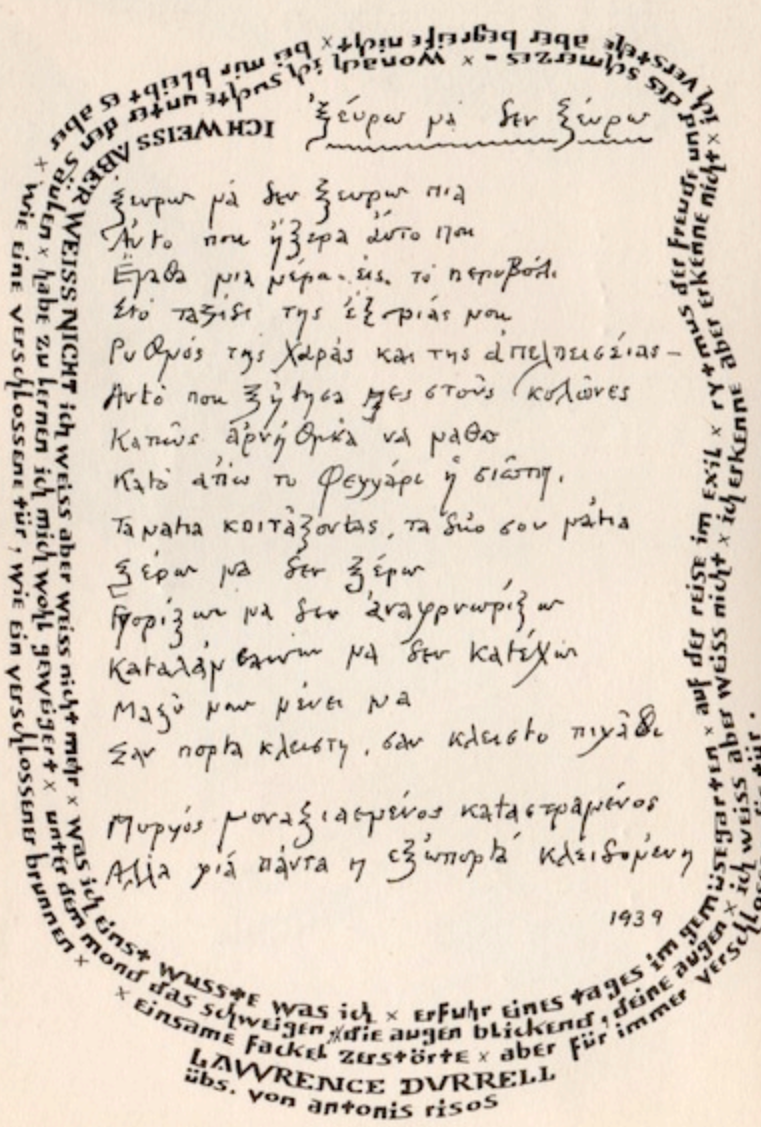 ξεύρω μά δεν ξεύρω
ξευρω μά δεν ξευρω πιά
Άυτο που ήξερα άυτο που
Έμαθα μια μέρα εις το περιβόλι
Στό ταξίδι της εξοριάς μου
Ρυθμός της Χαράς και της απελπεισείας –
Αυτό που ζήτησα μες στούς κολώνες
Καπως αρνήθηκα νά μαθω
Κατό απίω το Φεγγάρι ή σιώπη,
Τα ματια κοιτάζοντας, τα δύο σου μάτια
ξέρω μα δεν ξέρω
Γνορίζω μα δεν αναγρνωρίζω
Καταλάμβαινω μα δεν κατέχω
Μαζύ μου μένει μα
Σαν πορτα κλειστη, σαν κλειστο πιγάδι
Μυργός μοναξιασμένος καταστραμένος
Αλλα γιά πάντα η εξώπορτα κλειδομένη
1939
ICH WEISS ABER WEISS NICHT ich weiss aber weiss nicht mehr × was ich einst wusste was ich × erfuhr eines tages im gemüsegarten × auf der reise im exil × rytmus der freude und des schmerzes - × wonach ich suchte unter den säulen × habe zu lernen ich mich wohl geweigert × unter dem mond das schweigen × die augen blickend, deine augen × ich weiss aber weiss nicht × ich erkenne aber erkenne nicht × ich verstehe aber begreife nicht × bei mir bleibt es aber × wie eine verschlossene tür, wie ein verschlossener brunnen ×
× einsame fackel zerstörte × aber für immer verschlossen die tür.
LAWRENCE DVRRELL
übs. von antonis risos